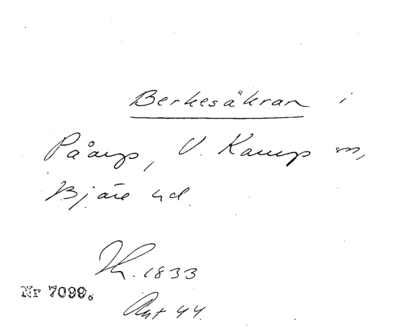 Berkesåkran i
Påarp, V. Karup sn,
Bjäre hd.
Nr 7099.
1833
Ant 44